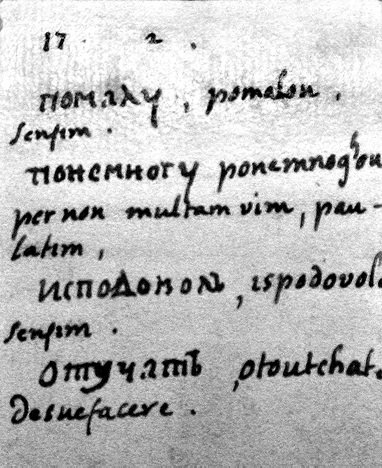 17. 2.
помалу, pomalou.
sensim.
понемногу ponemnoghou
per non multam vim, pau-
latim,
исподовол, ispodovol
sensim.
отучатъ, otoutchat.
desuefacere.